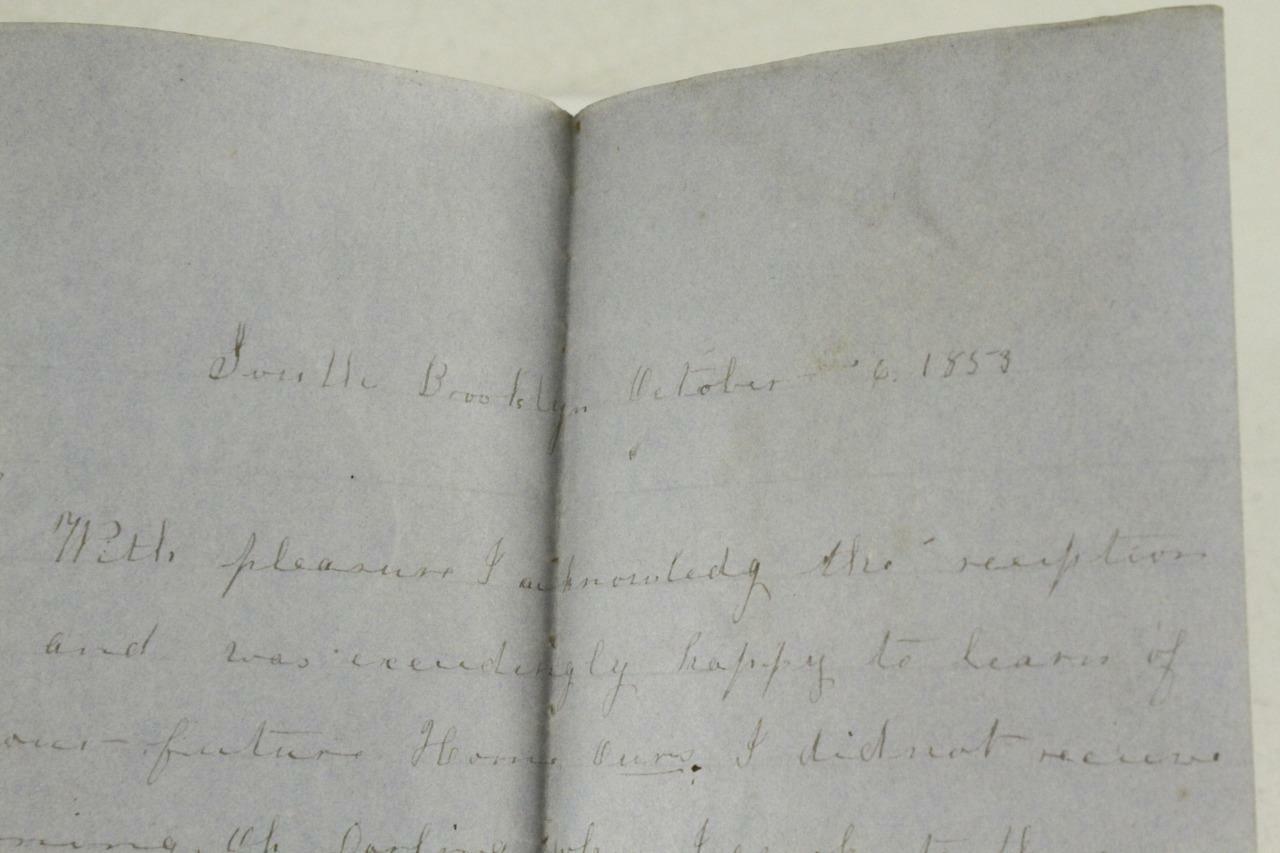 South Brooklyn October 6. 1853
With pleasure I acknowledg the reception
and was exceedingly happy to learn of
our future Home Ours. I did not receive
Oh Darling when I